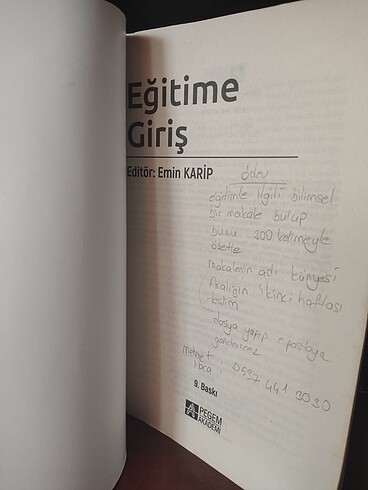 Eğitime
Giriş
Editör: Emin KARİP
ödev
eğitimle ilgili bilimsel
bir makale bulup
bunu 300 kelimeyle
özetle
makalenin adı künyesi
Aralığın ikinci haftası
teslim
dosya yapıp e postaya
gönderilecek
mehmet hoca: 0537 441 3030
9. Baskı
PEGEM
AKADEMİ